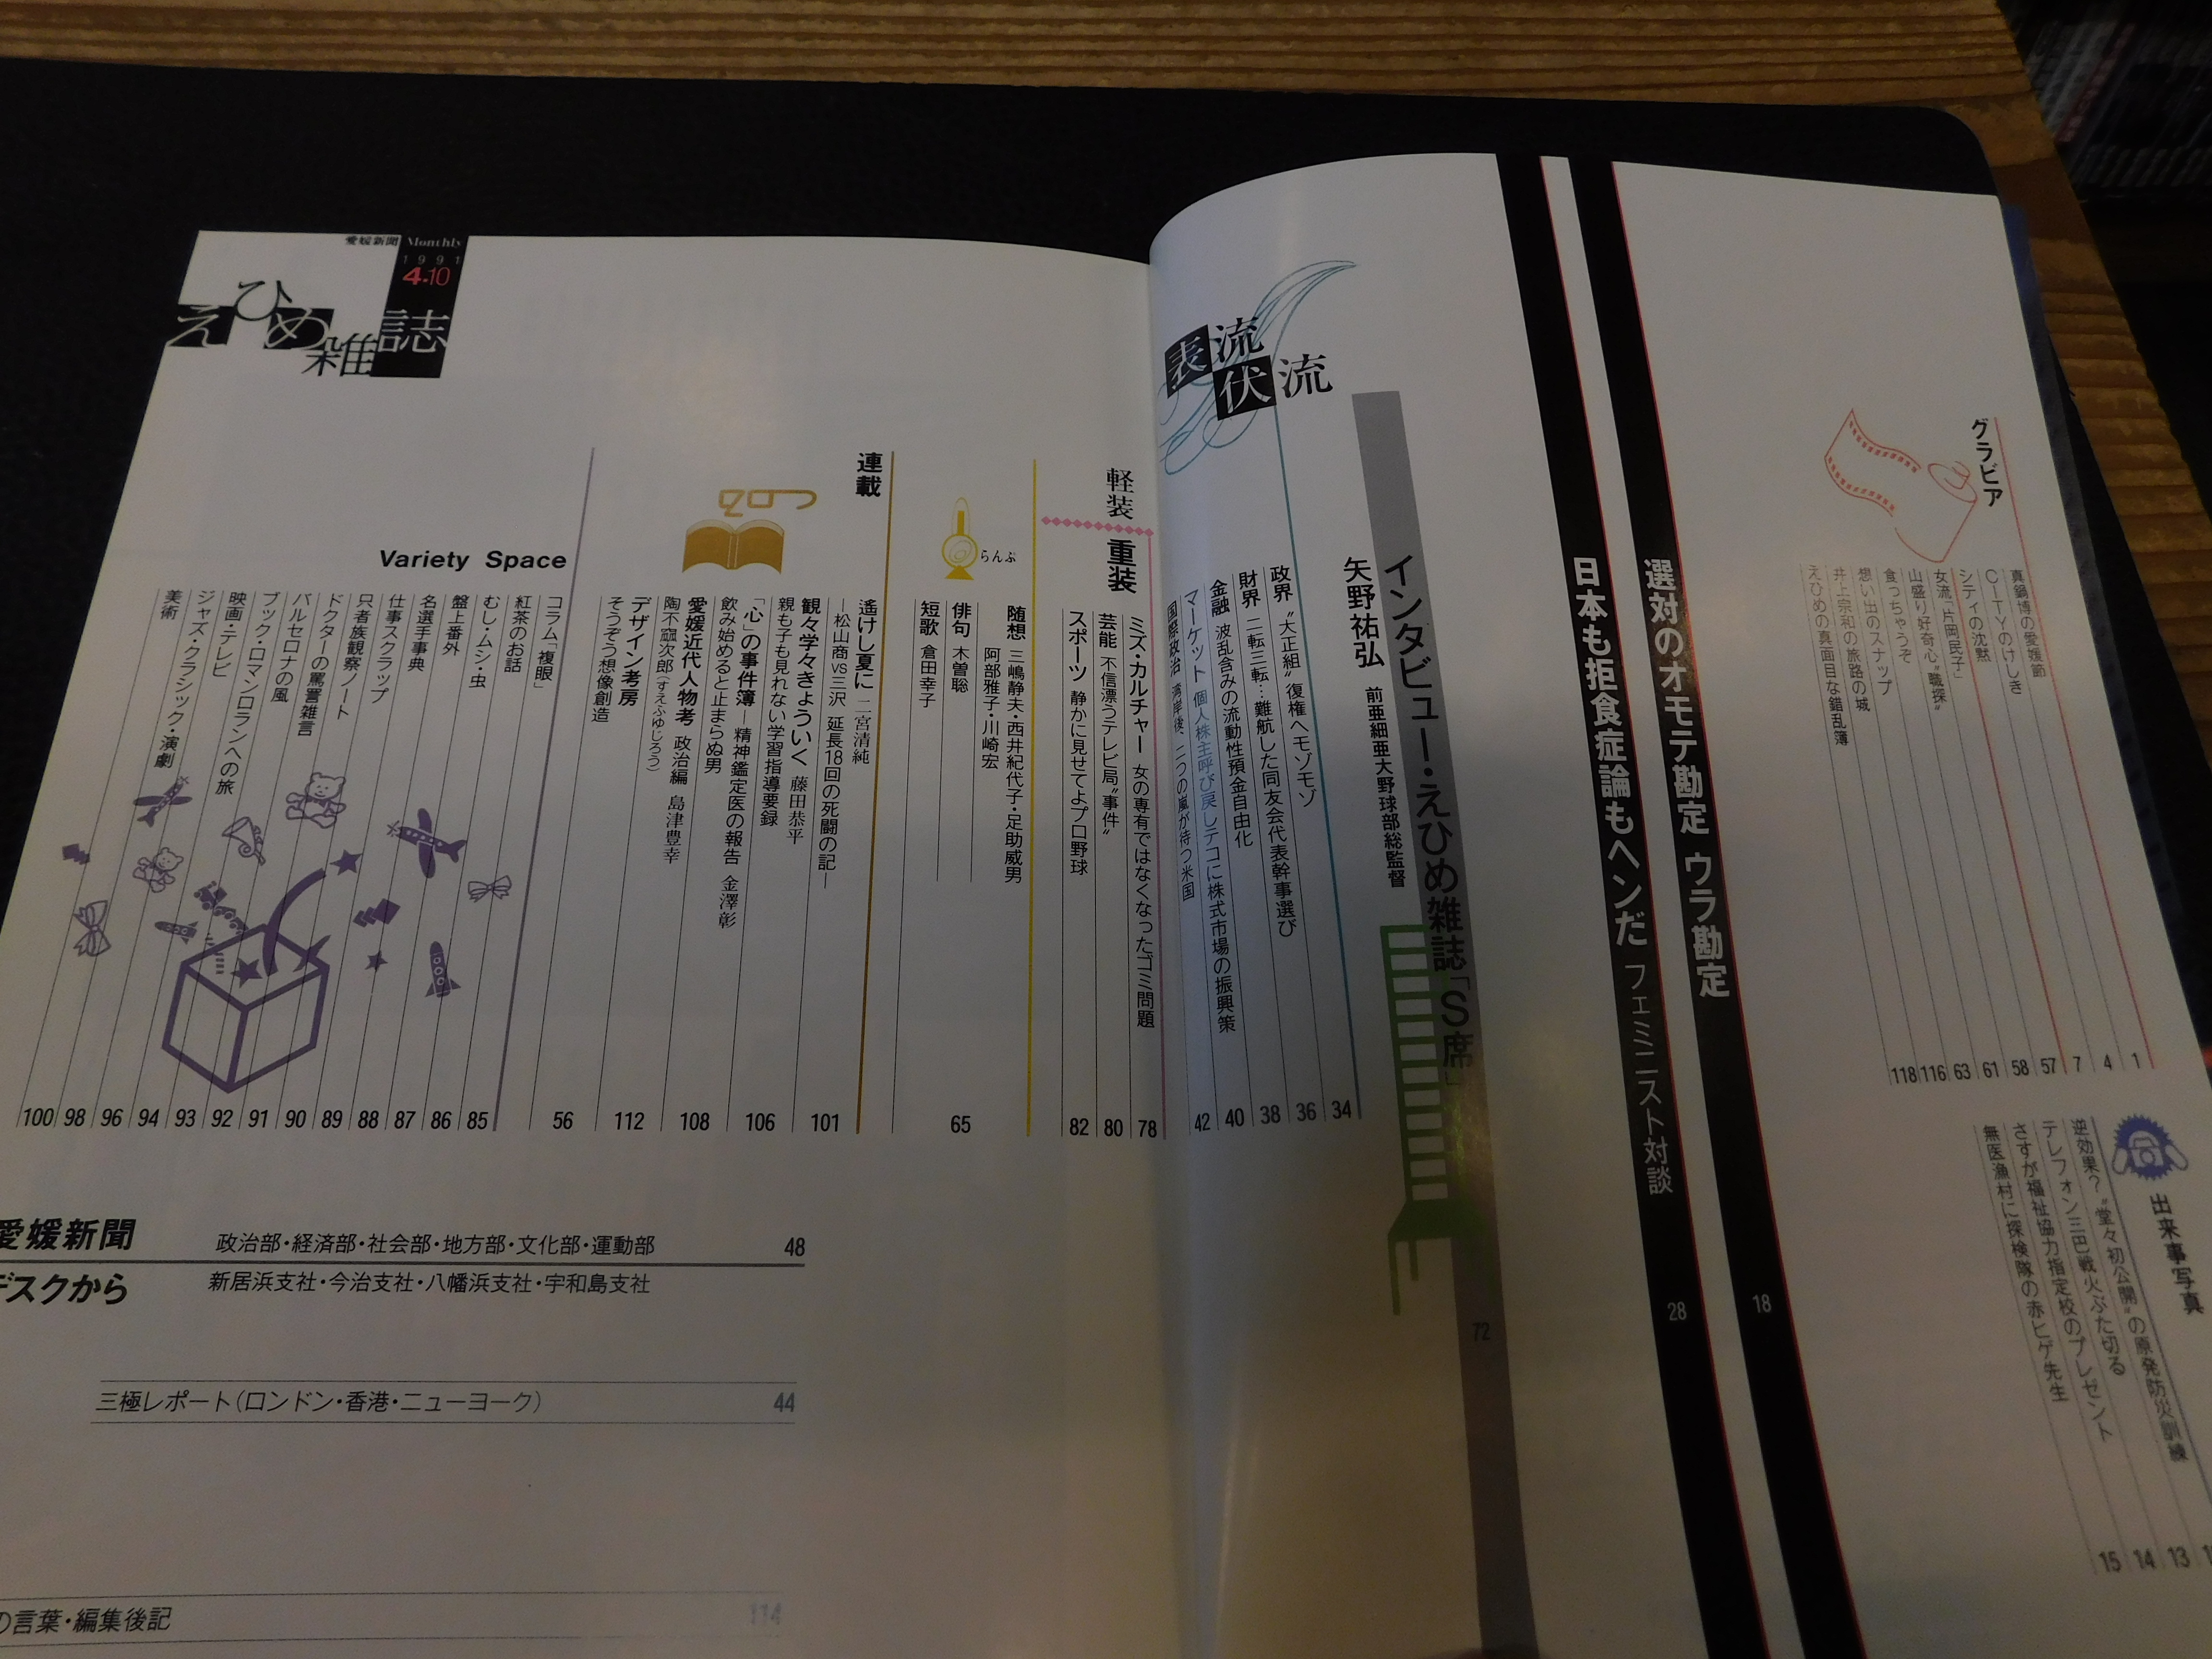 グラビア
真鍋博の愛媛節
1
CITYのけしき
4
シティの沈黙
7
女流「片岡民子」
57
山盛り好奇心〝職探〟
58
食っちゃうぞ
61
想い出のスナップ
63
井上宗和の旅路の城
116
えひめの真面目な錯乱簿
118
出来事写真
逆効果?〝堂々初公開〟の原発防災訓練
テレフォン三巴戦火ぶた切る
13
さすが福祉協力指定校のプレゼント
14
無医漁村に探検隊の赤ヒゲ先生
15
選対のオモテ勘定 ウラ勘定
18
日本も拒食症論もヘンだ フェミニスト対談
28
インタビュー・えひめ雑誌「S席」
矢野祐弘 前亜細亜大野球部総監督
72
表流
伏流
政界 〝大正組〟復権へモゾモゾ
34
財界 二転三転…難航した同友会代表幹事選び
36
金融 波乱含みの流動性預金自由化
38
マーケット 個人株主呼び戻しテコに株式市場の振興策
40
国際政治 湾岸後、二つの嵐が待つ米国
42
軽装
重装
ミズ・カルチャー 女の専有ではなくなったゴミ問題
78
芸能 不信漂うテレビ局〝事件〟
80
スポーツ 静かに見せてよプロ野球
82
らんぷ
随想 三嶋静夫・西井紀代子・足助威男
阿部雅子・川崎宏
俳句 木曽聡
短歌 倉田幸子
65
連載
遙けし夏に 二宮清純
―松山商VS三沢 延長18回の死闘の記―
101
観々学々きょういく 藤田恭平
親も子も見れない学習指導要録
106
「心」の事件簿―精神鑑定医の報告 金澤彰
飲み始めると止まらぬ男
108
愛媛近代人物考 政治編 島津豊幸
陶不窳次郎(すえふゆじろう)
112
デザイン考房
そうぞう想像創造
コラム「複眼」
56
Variety Space
紅茶のお話
85
むし・ムシ・虫
86
盤上番外
87
名選手事典
88
仕事スクラップ
89
只者族観察ノート
90
ドクターの罵詈雑言
91
バルセロナの風
92
ブック・ロマンロランへの旅
93
映画・テレビ
94
ジャズ・クラシック・演劇
96
美術
98
100
愛媛新聞 Monthly
1991
4.10
えひめ雑誌
愛媛新聞
デスクから
政治部・経済部・社会部・地方部・文化部・運動部
48
新居浜支社・今治支社・八幡浜支社・宇和島支社
三極レポート(ロンドン・香港・ニューヨーク)
44
の言葉・編集後記
114